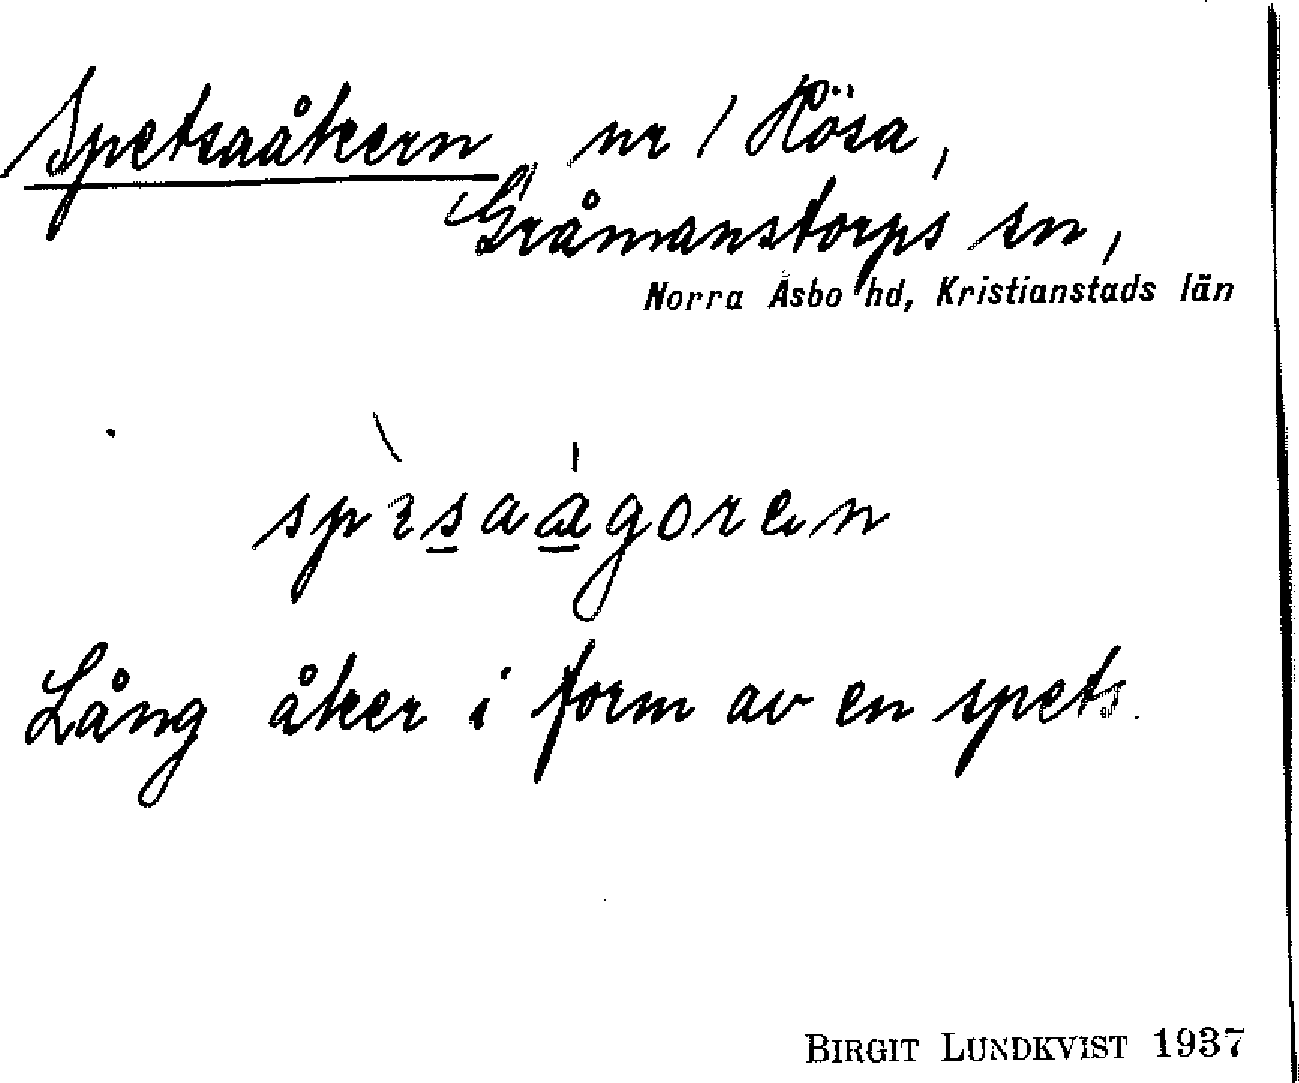 Spetsaåkern nr 1 Hösa,
Gråmanstorps sn,
Norra Åsbo hd, Kristianstads län
Lång åker i form av en spets.
BIRGIT LUNDKVIST 1937